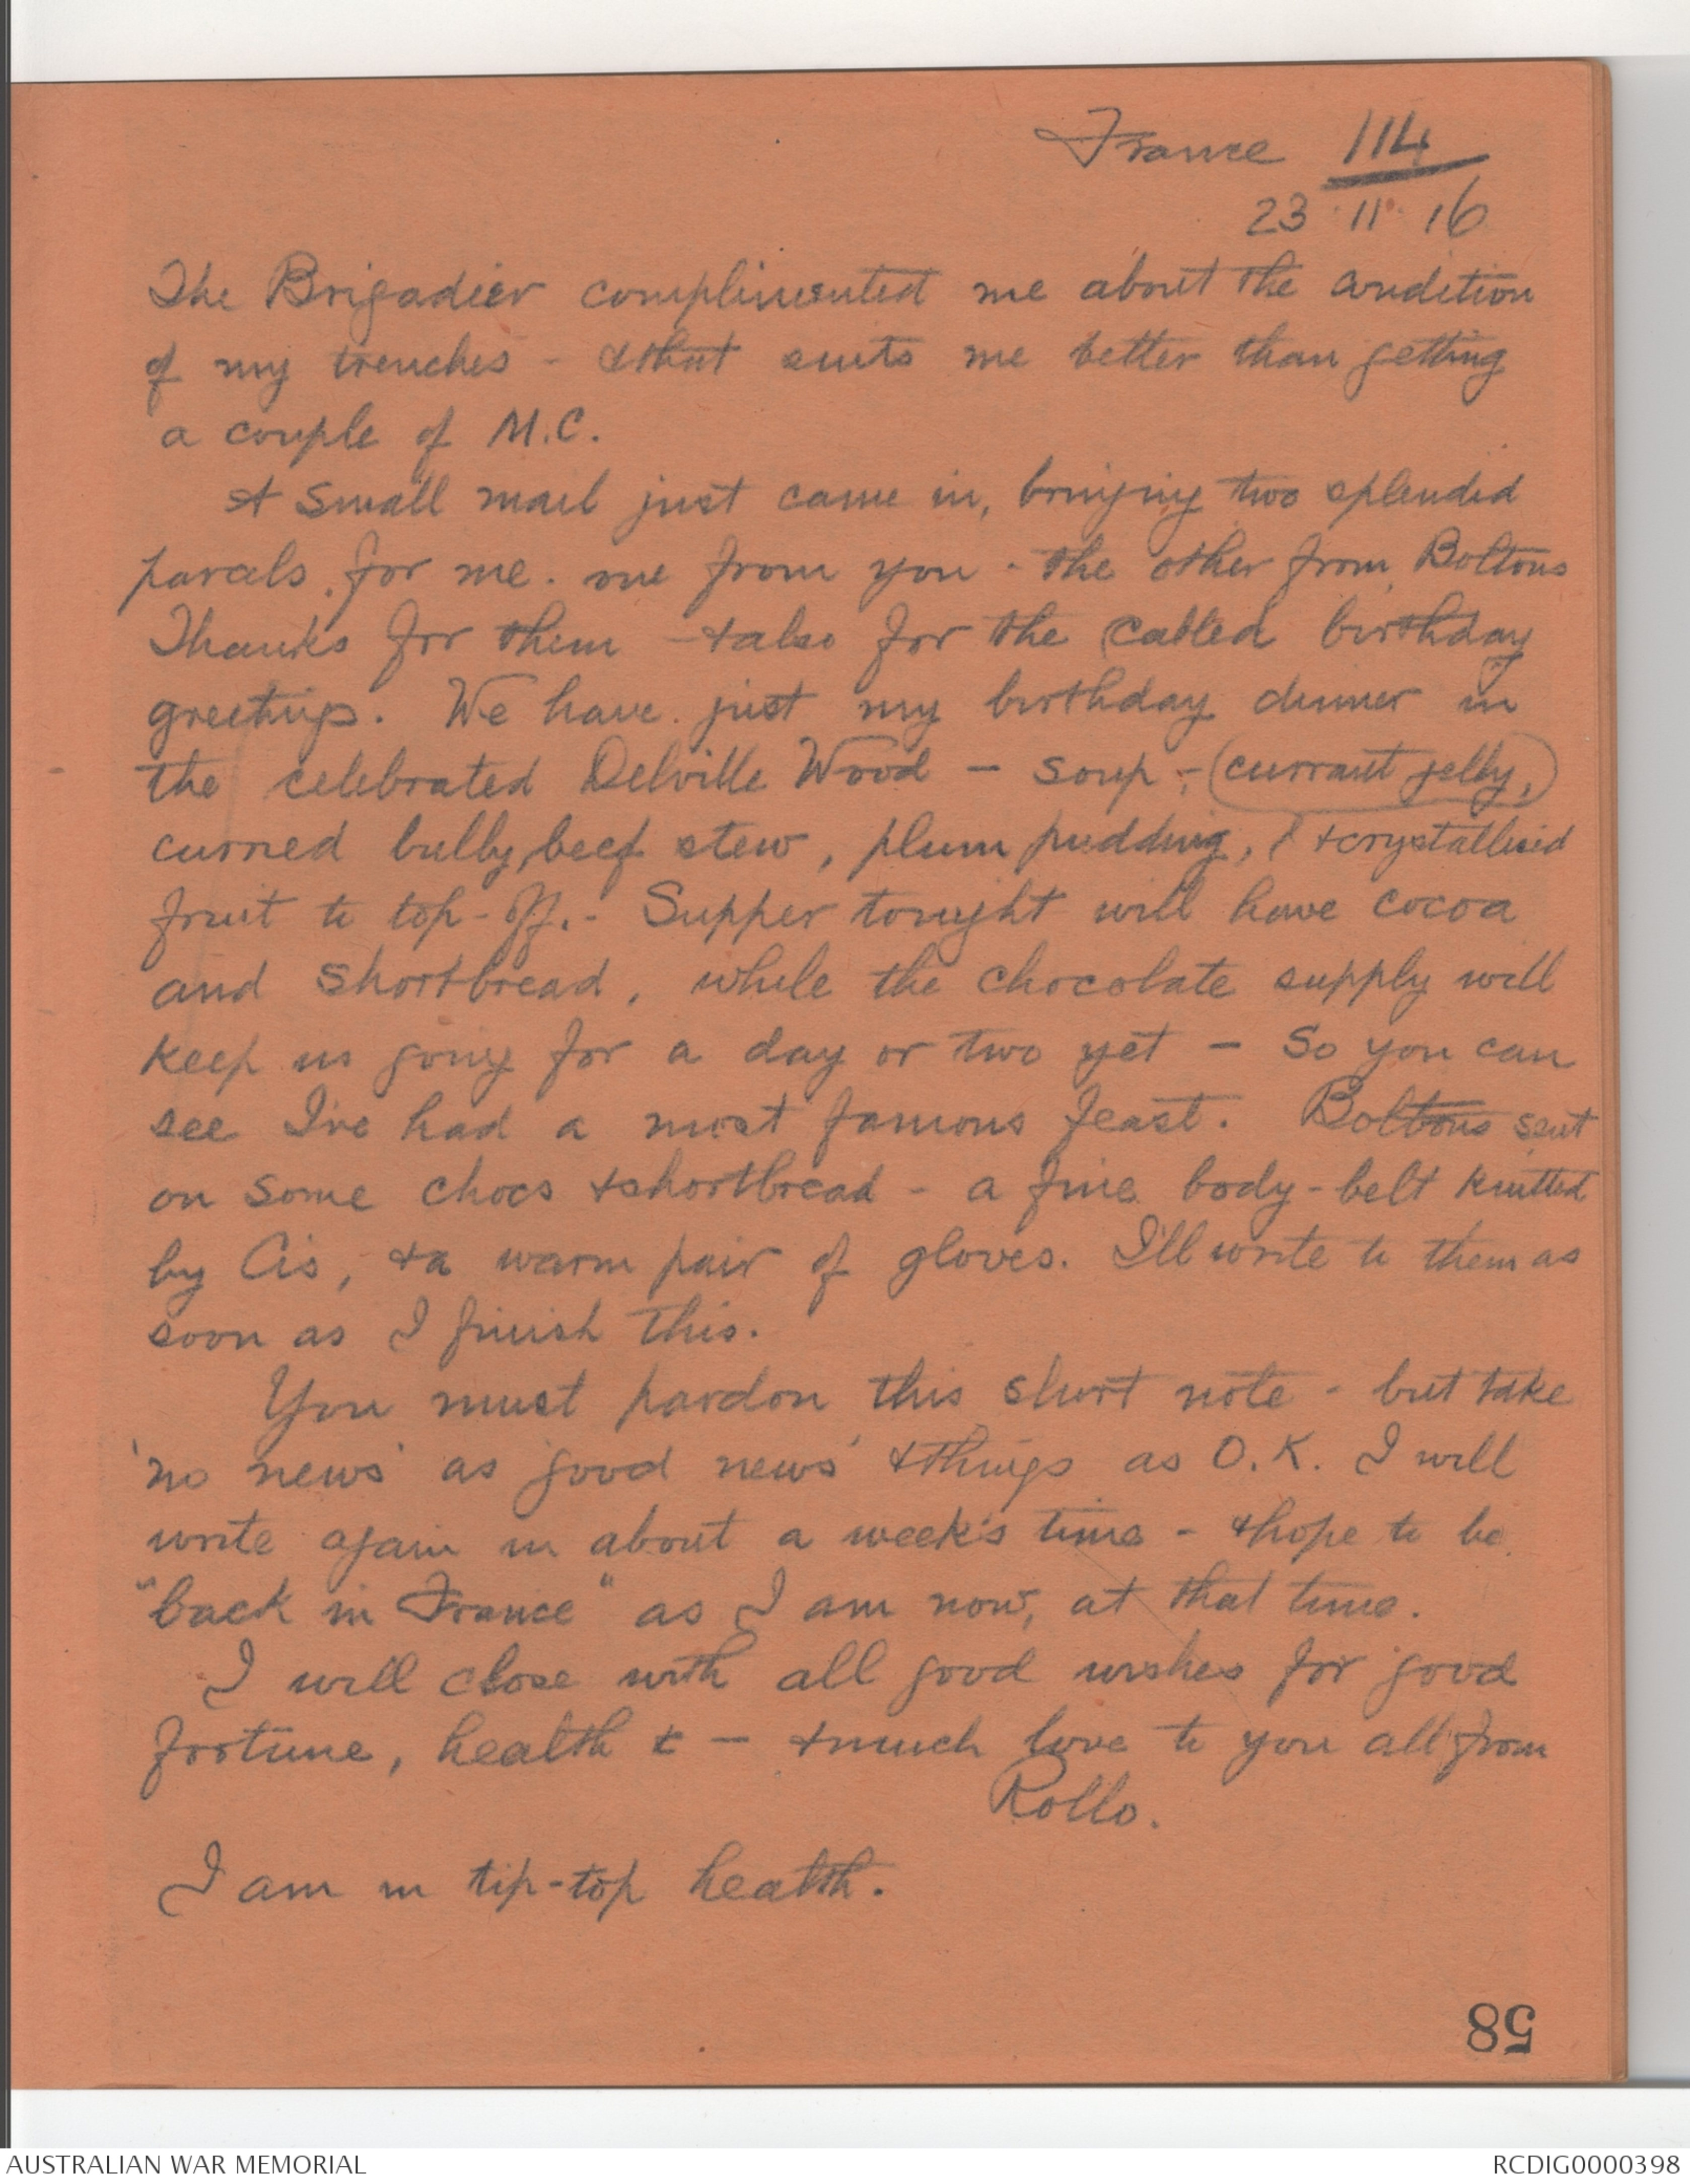 France 114
23.11.16
The Brigadier complimented me about the condition
of my trenches - & that suits me better than getting
a couple of M.C.
A small mail just came in, bringing two splendid
parcels for me. one from you - the other from Boltons
Thanks for them - & also for the cabled birthday
greetings. We have just my birthday dinner in
the celebrated Delville Wood - soup, - (currant jelly,)
curried bully beef stew, plum pudding, & crystallised
fruit to top-off. - Supper tonight will have cocoa
and shortbread, while the chocolate supply will
keep us going for a day or two yet - So you can
see I've had a most famous feast. Boltons sent
on some chocs & shortbread - a fine body-belt knitted
by Cis, & a warm pair of gloves. I'll write to them as
soon as I finish this.
You must pardon this short note - but take
'no news' as 'good news' & things as O.K. I will
write again in about a week's time - & hope to be
"back in France" as I am now, at that time.
I will close with all good wishes for good
fortune, health & - & much love to you all from
Rollo.
I am in tip-top health.
58
AUSTRALIAN WAR MEMORIAL
RCDIG0000398